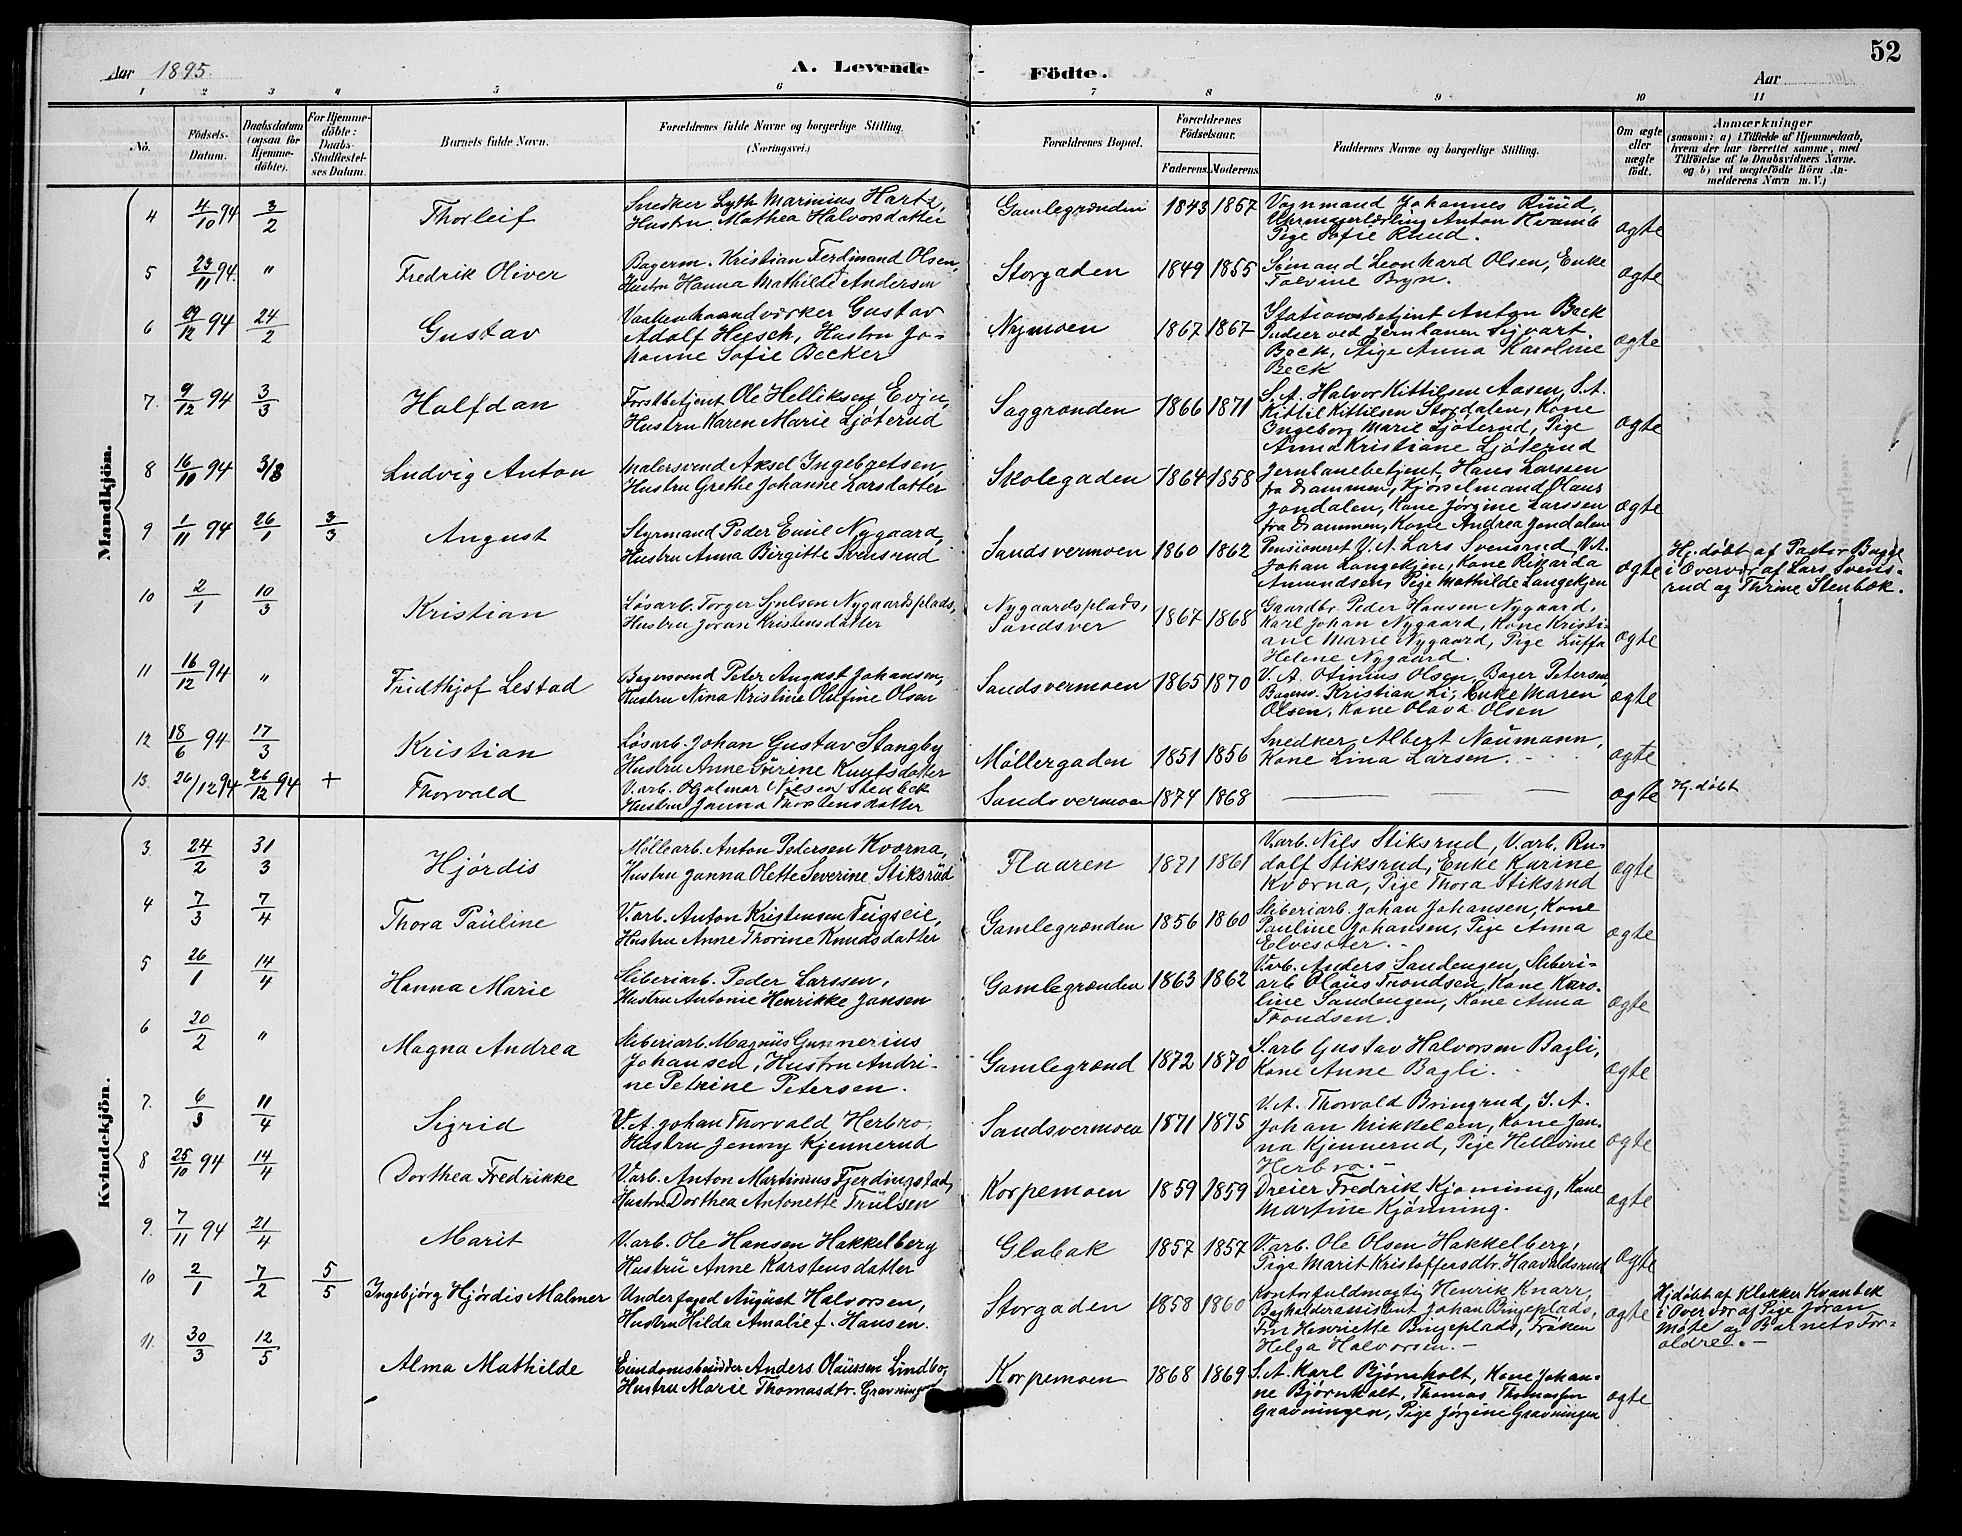 52
Aar 1895.
A. Levende Födte.
Aar
1 2 3 4 5 6 7 8 9 10 11
No.
Födsels-Datum.
Daabsdatum (ogsaa for Hjemme-döbte).
For Hjemme-döbte: Daabs-Stadfæstel-ses Datum.
Barnets fulde Navn.
Forældrenes fulde Navne og borgerlige Stilling. (Næringsvei.)
Forældrenes Bopæl.
Forældrenes Födselsaar.
Faderens. Moderens.
Faddernes Navne og borgerlige Stilling.
Om ægte eller uægte födt.
Anmærkninger
(saasom: a) i Tilfælde af Hjemmedaab, hvem der har forrettet samme, med Tilföielse af to Daabsvidners Navne. og b) ved uægtefödte Börn An-melderens Navn m. V.)
Mandkjön.
4 4/10 94 3/2 Thorleif
Snedker Lyth Marinius Hartz,
Hustru Mathea Halvorsdatter
Gamlegrænden 1843 1857
Vognmand Johannes Ruud,
Uhrmagerlærling Anton Hvamb
Pige Sofie Ruud.
ægte
5 23/11 94 " Fredrik Oliver
Bagerm. Kristian Ferdinand Olsen,
Hustru Hanna Mathilde Andersen
Storgaden 1849 1855
Sømand Leonhard Olsen, Enke
Tolvine Bryn.
ægte
6 19/12 94 24/2 Gustav
Vaabenhaandværker Gustav
Adolf Heesch, Hustru Jo-
hanne Sofie Becker
Nymoen 1867 1867
Stationsbetjent Anton Beck
Pudser ved Jernbanen Sigvart
Beck, Pige Anna Karoline
Beck
ægte
7. 9/12 94 3/3 Halfdan
Forstbetjent Ole Helliksen Evju,
Hustru Karen Marie Ljøterud
Saggrænden 1866 1871
S.A. Halvor Kittilsen Aasen, S.A.
Kittil Kittilsen Stordalen, Kone
Ingeborg Marie Ljøterud, Pige
Anna Kristiane Ljøterud
ægte
8 16/10 94 3/3 Ludvig Anton
Malersvend Aksel Ingebretsen,
Hustru Grethe Johanne Larsdatter
Skolegaden 1864 1858
Jernbanebetjent Hans Larssen
fra Drammen, Kjørselmand Olaus
Jondalen, Kone Jørgine Larssen
fra Drammen, Kone Andrea Jondalen
ægte
9 1/11 94 26/1 3/3 August
Styrmand Peder Emil Nygaard,
Hustru Anna Birgitte Svensrud
Sandsvermoen 1860 1862
Pensioneret V.A. Lars Svensrud, V.A.
Johan Langekjen, Kone Rikarda
Amundsen, Pige Mathilde Langekjen
ægte
Hj. døbt af Pastor Bugge
i Overvær af Lars Svens-
rud og Thrine Stenbæk.
10 2/1 10/3 Kristian
Løsarb. Torger Gjulsen Nygaardsplads,
Hustru Jøran Kristensdatter
Nygaardsplads,
Sandsver 1867 1868
Gaardbr. Peder Hansen Nygaard,
Karl Johan Nygaard, Kone Kristi-
ane Marie Nygaard, Pige
Helene Nygaard.
ægte
11 16/12 94 " Fridthjof Lestad
Bagersvend Peter August Johansen,
Hustru Nina Kristine Olufine Olsen
Sandsvermoen 1865 1870
V.A. Otinius Olsen, Bager Petersen,
Bagersv. Kristian Li, Enke Maren
Olsen, Kone Olava Olsen
ægte
12 18/6 94 17/3 Kristian
Løsarb. Johan Gustav Stangby
Hustru Anne Sörine Knutsdatter
Møllergaden 1851 1856
Snedker Albert Naumann,
Kone Lina Larsen.
ægte
13. 26/12 94 26/12 94 + Thorvald
V.arb. Hjalmar Nilsen Stenbek
Hustru Janna Thorstensdatter
Sandsvermoen 1874 1868
ægte
Hj. døbt
Kvindekjön.
3 24/2 31/3 Hjördis
Møllearb. Anton Pedersen Kværna,
Hustru Janna Olette Severine Stiksrud
Flaaren 1871 1861
V.arb. Nils Stiksrud, V.arb. Ru-
dolf Stiksrud, Enke Karine
Kværna, Pige Thora Stiksrud
ægte
4 7/3 7/4 Thora Pauline
V.arb. Anton Kristensen Teigseie,
Hustru Anne Thorine Knudsdatter
Gamlegrænden 1856 1860
Sliberiarb. Johan Johansen, Kone
Pauline Johansen, Pige Anna
Elvesæter.
ægte
5 26/1 14/4 Hanna Marie
Sliberiarb. Peder Larssen,
Hustru Antonie Henrikke Jansen
Gamlegrænden 1863 1862
V.arb. Anders Sandengen, Sliberi-
arb. Olaus Trondsen, Kone Karo-
line Sandengen, Kone Anna
Trondsen.
ægte
6 20/2 " Magna Andrea
Sliberiarb. Magnus Gunnerius
Johansen, Hustru Andri-
ne Petrine Petersen.
Gamlegrænd 1872 1870
S.arb Gustav Halvorsen Bagli,
Kone Anne Bagli.
ægte
7. 6/3 11/4 Sigrid
V.A. Johan Thorvald Herbro,
Hustru Jenny Kjennerud
Sandsvermoen 1871 1875
V.A. Thorvald Bringrud, S.A.
Johan Mikkelsen, Kone Jan-
na Kjennerud, Pige Hellvine
Herbro.
ægte
8 25/10 94 14/4 Dorthea Fredrikke
V.arb. Anton Martinius Fjerdingstad,
Hustru Dorthea Antonette Trulsen
Korpemoen 1859 1859
Dreier Fredrik Kjønning, Kone
Martine Kjønning.
ægte
9. 7/11 94 21/4 Marit
V.arb. Ole Hansen Hakkelberg
Hustru Anne Karstensdatter
Glabak 1857 1857
V.arb. Ole Olsen Hakkelberg,
Pige Marit Kristoffersdtr. Haavaldsrud
ægte
10 2/1 7/2 5/5 Ingebjörg Hjördis Malmer
Underfoged August Halvorsen,
Hustru Hilda Amalie f. Hansen.
Storgaden 1858 1860
Kontorfuldmægtig Henrik Knarr,
Boghalderassistent Johan Bingeplads,
Fru Henriette Bingeplads, Frøken
Helga Halvorsen.
ægte
Hjdøbt af Klokker Kvanbek
i Overvær af Pige Jøran
Møte og Barnets For-
ældre.
11. 30/3 12/5 Alma Mathilde
Eiendomsbesidder Anders Olaussen Lindbo,
Hustru Marie Thomasdtr. Gravningen
Korpemoen 1868 1869
S.A. Karl Bjørnholt, Kone Johan-
ne Bjørnholt, Thomas Thomassen
Gravningen, Pige Jørgine Gravningen
ægte